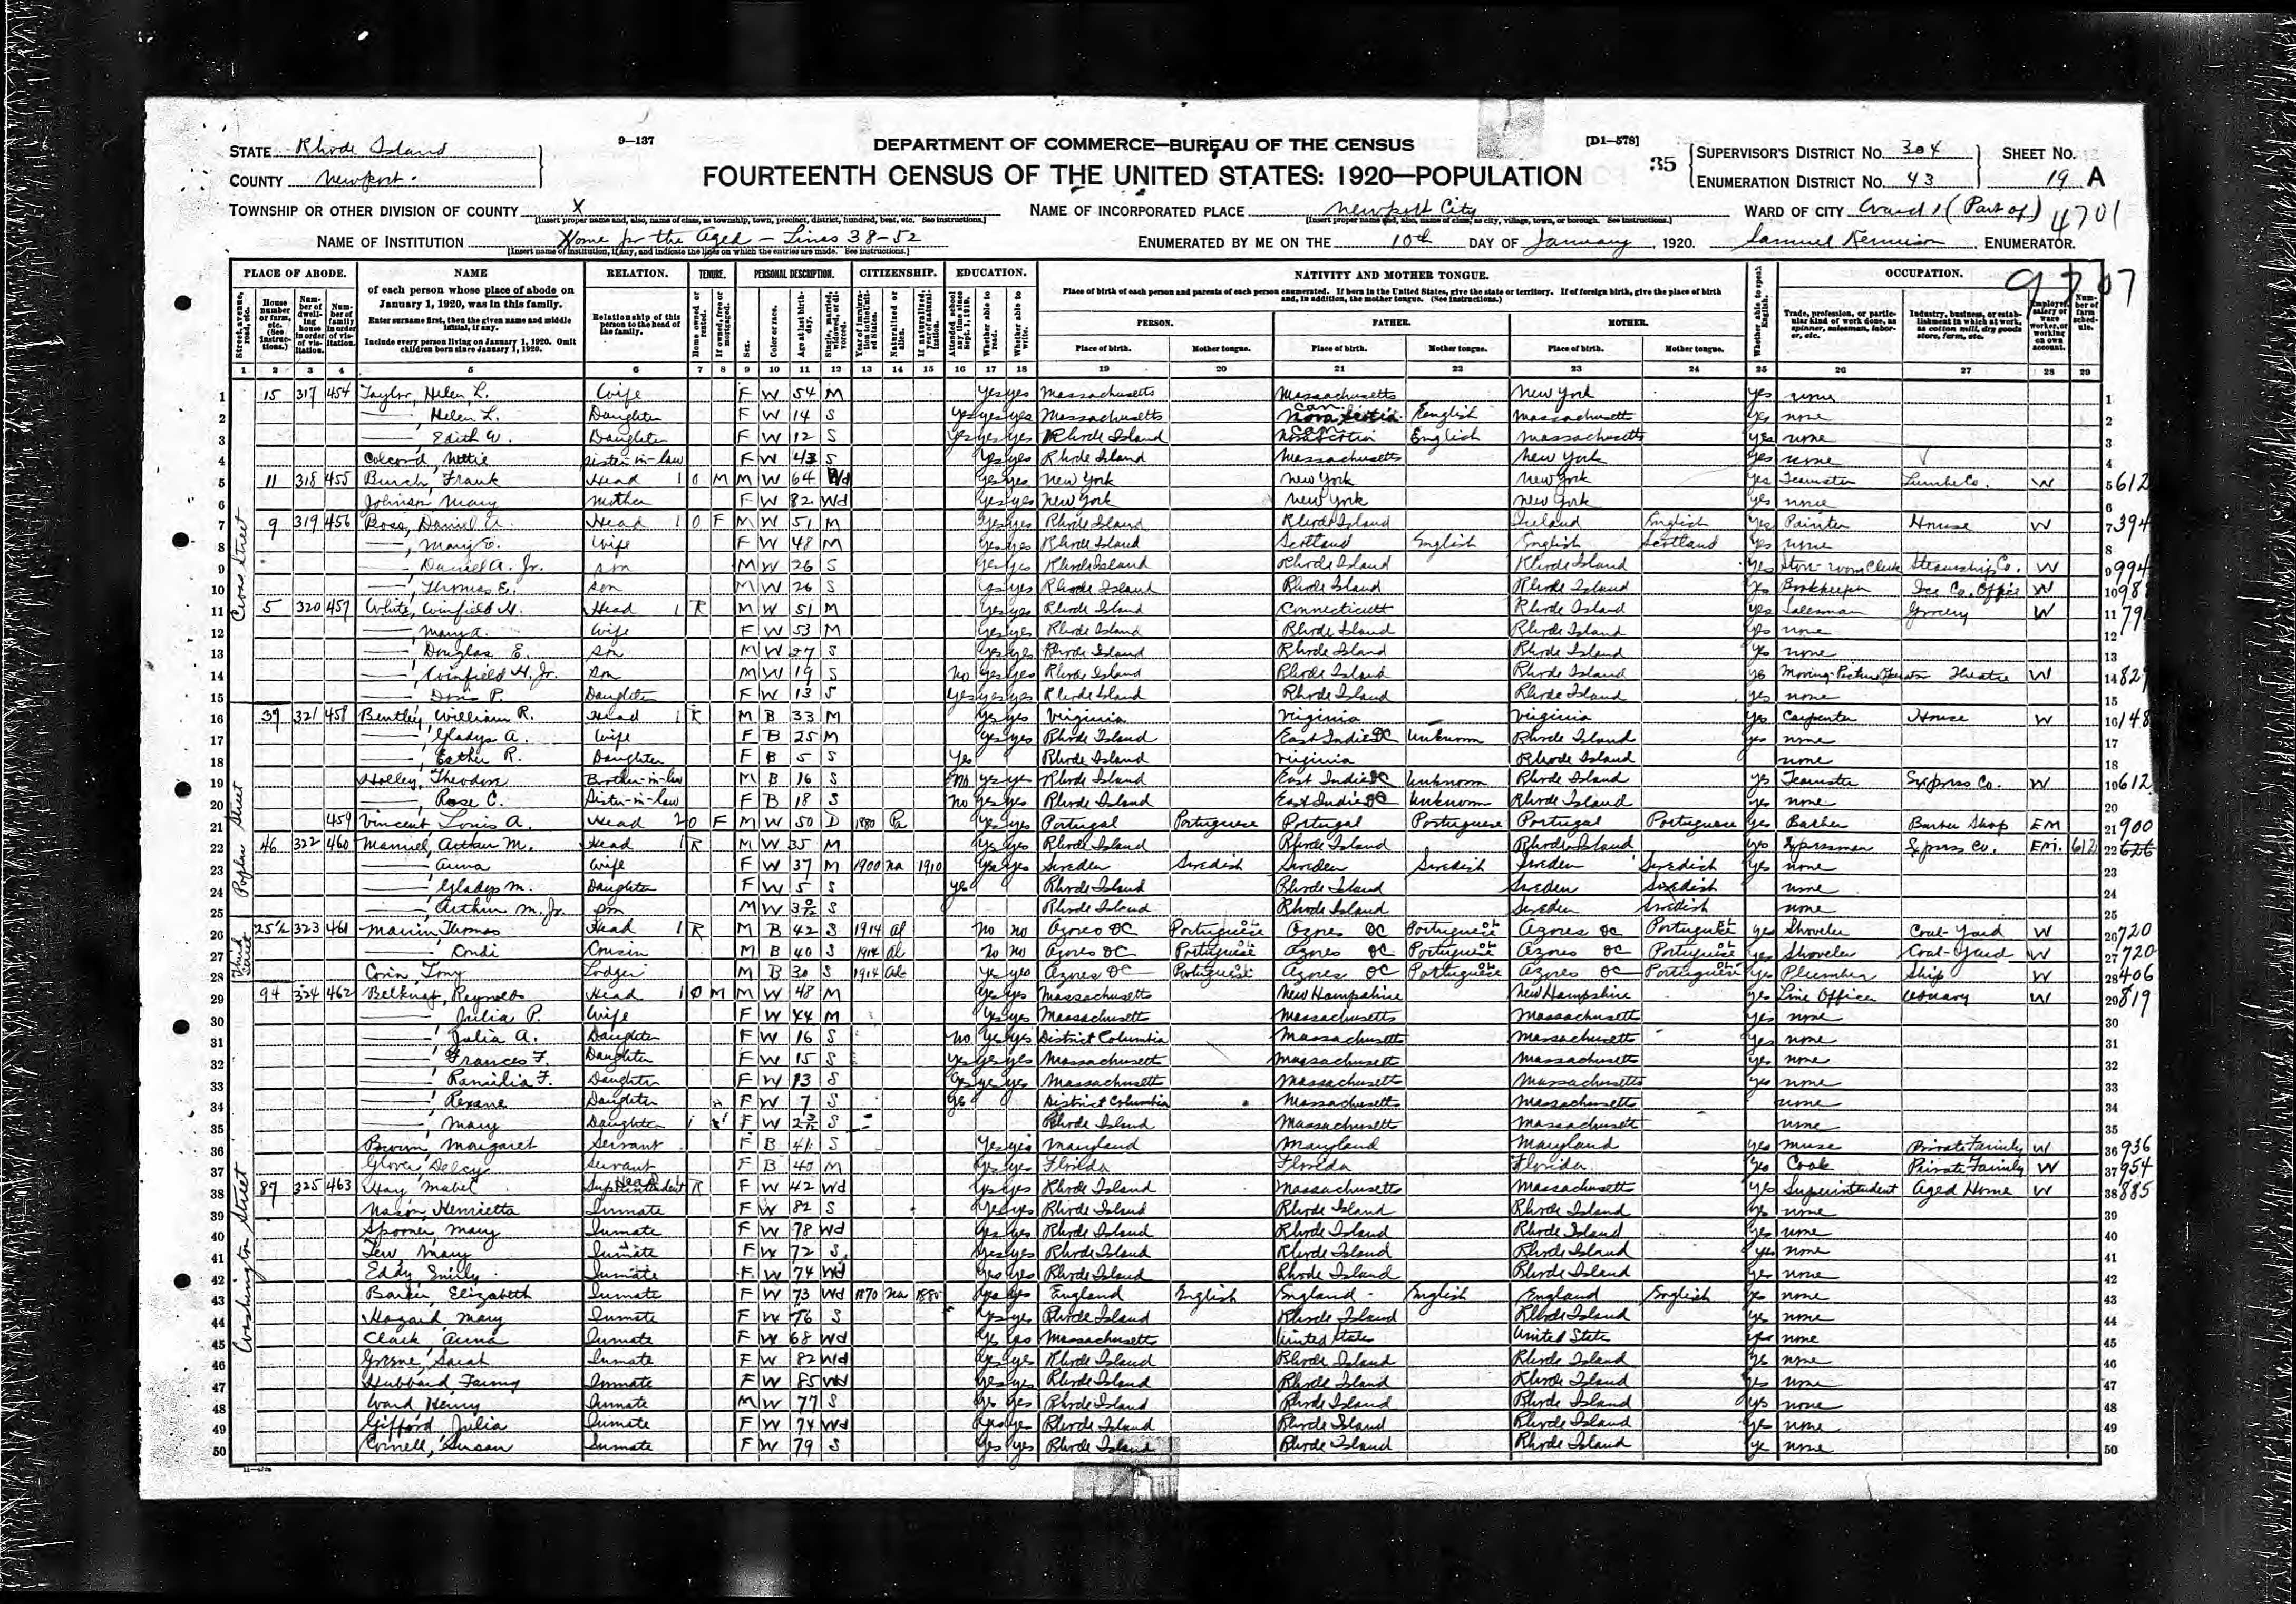 STATE Rhode Island
COUNTY Newport.
9—137
DEPARTMENT OF COMMERCE—BUREAU OF THE CENSUS
[D1—578]
FOURTEENTH CENSUS OF THE UNITED STATES: 1920—POPULATION
35
SUPERVISOR'S DISTRICT NO. 304 SHEET NO.
ENUMERATION DISTRICT NO. 43 19 A
TOWNSHIP OR OTHER DIVISION OF COUNTY X
[Insert proper name and, also, name of class, as township, town, precinct, district, hundred, beat, etc. See instructions.]
NAME OF INCORPORATED PLACE Newport City
[Insert proper name and, also, name of class, as city, village, town, or borough. See instructions.]
WARD OF CITY Ward 1 (Part of) 4701
NAME OF INSTITUTION Home for the Aged — Lines 38-52
[Insert name of institution, if any, and indicate the lines on which the entries are made. See instructions.]
ENUMERATED BY ME ON THE 10th DAY OF January, 1920. Samuel ENUMERATOR.
9707
PLACE OF ABODE. NAME RELATION. TENURE. PERSONAL DESCRIPTION. CITIZENSHIP. EDUCATION. NATIVITY AND MOTHER TONGUE. OCCUPATION.
of each person whose place of abode on January 1, 1920, was in this family.
Enter surname first, then the given name and middle initial, if any.
Include every person living on January 1, 1920. Omit children born since January 1, 1920.
Relationship of this person to the head of the family.
Place of birth of each person and parents of each person enumerated. If born in the United States, give the state or territory. If of foreign birth, give the place of birth and, in addition, the mother tongue. (See instructions.)
PERSON. FATHER. MOTHER.
Place of birth. Mother tongue. Place of birth. Mother tongue. Place of birth. Mother tongue.
1 2 3 4 5 6 7 8 9 10 11 12 13 14 15 16 17 18 19 20 21 22 23 24 25 26 27 28 29
Cross Street
1 15 317 454 Taylor, Helen L. Wife F W 54 M Yes yes Massachusetts Massachusetts New York yes none 1
2 —, Helen L. Daughter F W 14 S Yes yes yes Massachusetts Can. Nova Scotia English Massachusetts yes none 2
3 —, Edith W. Daughter F W 12 S Yes yes yes Rhode Island Can. Nova Scotia English Massachusetts yes none 3
4 Colcord, Nettie Sister-in-law F W 43 S Yes yes Rhode Island Massachusetts New York yes none 4
5 11 318 455 Burch, Frank Head 1 O M M W 64 Wd Yes yes New York New York New York yes Teamster Lumber Co. W 5 612
6 Johnson Mary Mother F W 82 Wd Yes yes New York New York New York yes none 6
7 9 319 456 Ross, Daniel A. Head 1 O F M W 51 M Yes yes Rhode Island Rhode Island Ireland English yes Painter House W 7 394
8 —, Mary E. Wife F W 48 M Yes yes Rhode Island Scotland English English Scotland yes none 8
9 —, Daniel A. Jr. Son M W 26 S Yes yes Rhode Island Rhode Island Rhode Island yes Store-room Clerk Steamship Co. W 9 994
10 —, Thomas E. Son M W 26 S Yes yes Rhode Island Rhode Island Rhode Island yes Bookkeeper Ice Co. Office W 10 988
11 5 320 457 White, Winfield H. Head 1 R M W 51 M Yes yes Rhode Island Connecticut Rhode Island yes Salesman Grocery W 11 79
12 —, Mary A. Wife F W 53 M Yes yes Rhode Island Rhode Island Rhode Island yes none 12
13 —, Douglas E. Son M W 27 S Yes yes Rhode Island Rhode Island Rhode Island yes none 13
14 —, Winfield H. Jr. Son M W 19 S No yes yes Rhode Island Rhode Island Rhode Island yes Moving Picture Operator Theatre W 14 829
15 —, Doris P. Daughter F W 13 S Yes yes yes Rhode Island Rhode Island Rhode Island yes none 15
Poplar Street
16 37 321 458 Bentley, William R. Head 1 R M B 33 M Yes yes Virginia Virginia Virginia yes Carpenter House W 16 148
17 —, Gladys A. Wife F B 25 M Yes yes Rhode Island East Indies OC Unknown Rhode Island yes none 17
18 —, Esther R. Daughter F B 5 S Yes Rhode Island Virginia Rhode Island none 18
19 Holley, Theodore Brother-in-law M B 16 S No yes yes Rhode Island East Indies OC Unknown Rhode Island yes Teamster Express Co. W 19 612
20 —, Rose C. Sister-in-law F B 18 S No yes yes Rhode Island East Indies OC Unknown Rhode Island yes none 20
21 459 Vincent, Louis A. Head 2 O F M W 50 D 1880 Pa Yes yes Portugal Portuguese Portugal Portuguese Portugal Portuguese yes Barber Barber Shop EM 21 900
22 46 322 460 Manuel, Arthur M. Head 1 R M W 35 M Yes yes Rhode Island Rhode Island Rhode Island yes Expressman Express Co. EM. 612 22 626
23 —, Anna Wife F W 37 M 1900 Na 1910 Yes yes Sweden Swedish Sweden Swedish Sweden Swedish yes none 23
24 —, Gladys M. Daughter F W 5 S yes Rhode Island Rhode Island Sweden Swedish none 24
25 —, Arthur M. Jr. Son M W 3 0/12 S Rhode Island Rhode Island Sweden Swedish none 25
Third Street
26 25½ 323 461 Thomas Head 1 R M B 42 S 1914 Al No no Azores OC Portuguese OL Azores OC Portuguese OL Azores OC Portuguese OL yes Shoveler Coal-Yard W 26 720
27 Cousin M B 40 S 1914 Al No no Azores OC Portuguese OL Azores OC Portuguese OL Azores OC Portuguese OL yes Shoveler Coal-Yard W 27 720
28 Tony Lodger M B 30 S 1914 Al Yes yes Azores OC Portuguese OL Azores OC Portuguese OL Azores OC Portuguese OL yes Plumber Ship W 28 406
Washington Street
29 94 324 462 Belknap, Reynolds Head 1 O M M W 48 M Yes yes Massachusetts New Hampshire New Hampshire yes Line Officer W 29 819
30 —, Julia P. Wife F W 44 M Yes yes Massachusetts Massachusetts Massachusetts yes none 30
31 —, Julia A. Daughter F W 16 S No yes yes District Columbia Massachusetts Massachusetts yes none 31
32 —, Frances F. Daughter F W 15 S Yes yes yes Massachusetts Massachusetts Massachusetts yes none 32
33 —, F. Daughter F W 13 S Yes yes yes Massachusetts Massachusetts Massachusetts yes none 33
34 —, Rexane Daughter F W 7 S Yes District Columbia Massachusetts Massachusetts none 34
35 —, Mary Daughter F W 2 3/12 S Rhode Island Massachusetts Massachusetts none 35
36 Brown, Margaret Servant F B 41 S Yes yes Maryland Maryland Maryland yes Nurse Private Family W 36 936
37 Glover, Delcy Servant F B 40 M Yes yes Florida Florida Florida yes Cook Private Family W 37 954
38 87 325 463 Hay, Mabel Head Superintendent R F W 42 Wd Yes yes Rhode Island Massachusetts Massachusetts yes Superintendent Aged Home W 38 885
39 Nason, Henrietta Inmate F W 82 S Yes yes Rhode Island Rhode Island Rhode Island yes none 39
40 Spooner, Mary Inmate F W 78 Wd Yes yes Rhode Island Rhode Island Rhode Island yes none 40
41 Tew, Mary Inmate F W 72 S Yes yes Rhode Island Rhode Island Rhode Island yes none 41
42 Eddy, Emily Inmate F W 74 Wd Yes yes Rhode Island Rhode Island Rhode Island yes none 42
43 Barker, Elizabeth Inmate F W 73 Wd 1870 Na 1880 Yes yes England English England English England English yes none 43
44 Hazard, Mary Inmate F W 76 S Yes yes Rhode Island Rhode Island Rhode Island yes none 44
45 Clark, Anna Inmate F W 68 Wd Yes yes Massachusetts United States United States yes none 45
46 Greene, Sarah Inmate F W 82 Wd Yes yes Rhode Island Rhode Island Rhode Island yes none 46
47 Hubbard, Fanny Inmate F W 85 Wd Yes yes Rhode Island Rhode Island Rhode Island yes none 47
48 Ward Henry Inmate M W 77 S Yes yes Rhode Island Rhode Island Rhode Island yes none 48
49 Gifford, Julia Inmate F W 74 Wd Yes yes Rhode Island Rhode Island Rhode Island yes none 49
50 Cornell, Susan Inmate F W 79 S Yes yes Rhode Island Rhode Island Rhode Island yes none 50